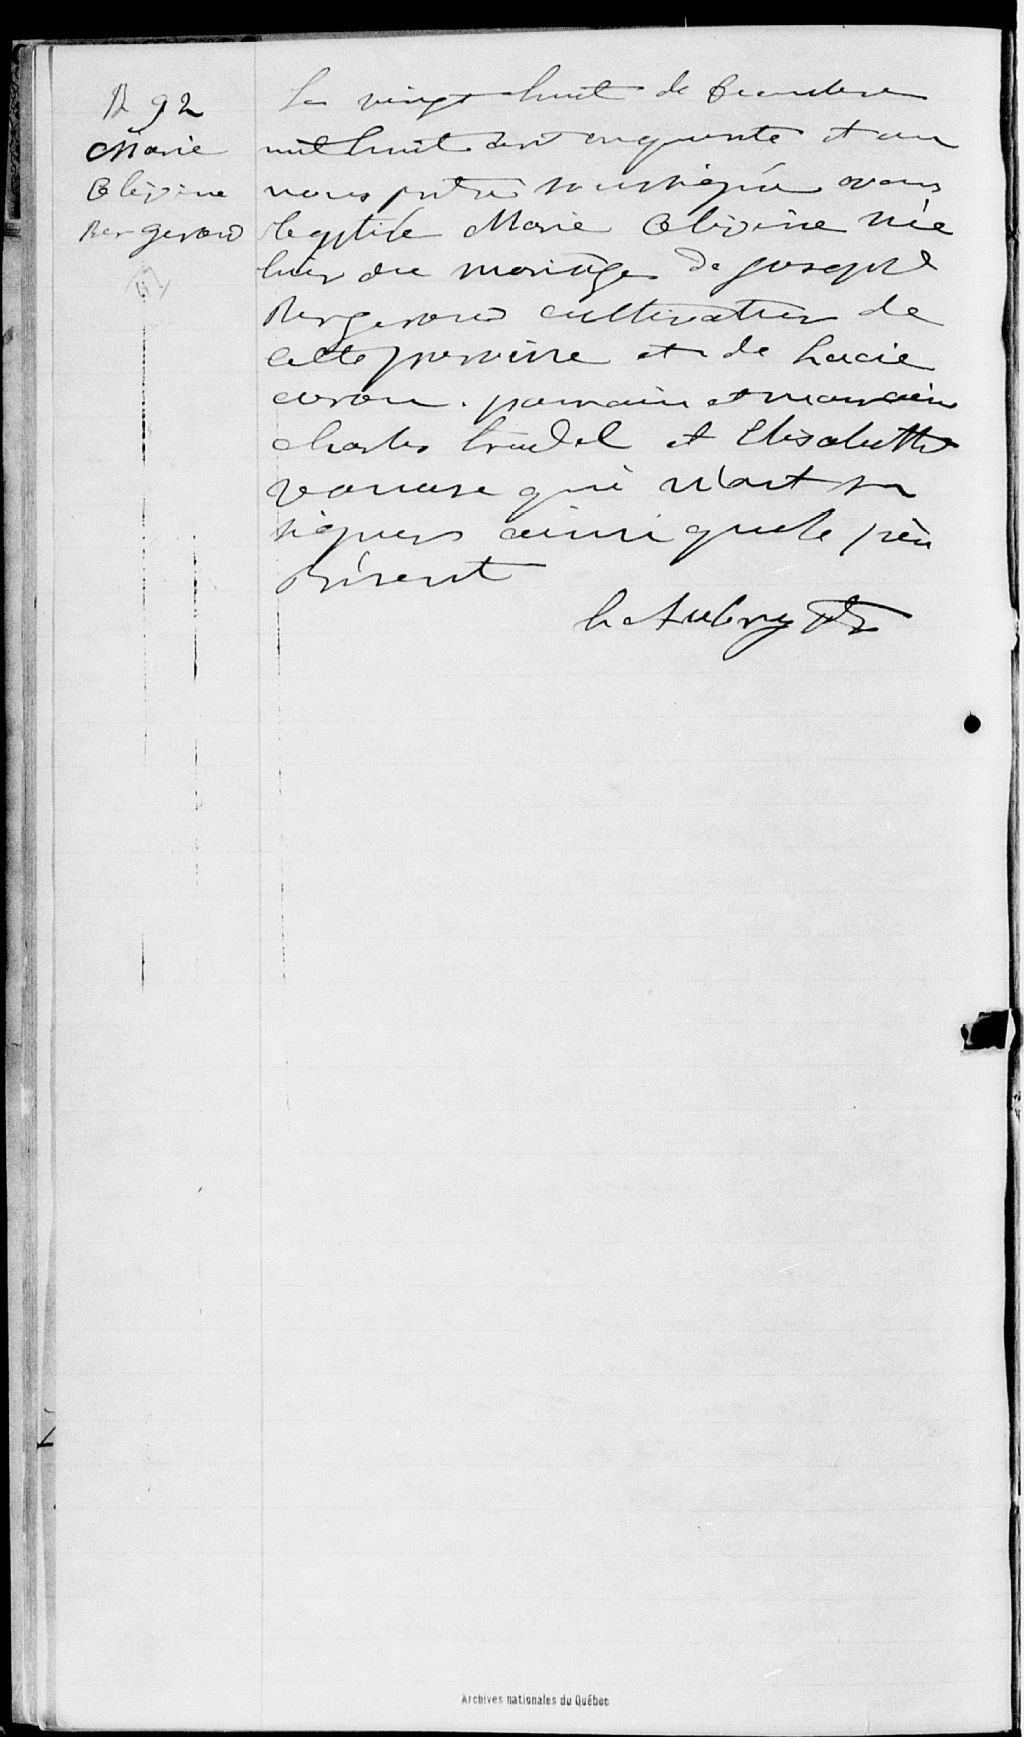 B 92
Marie
Olivine
Bergeron
Le vingt huit de
mil huit cent cinquante et un
nous prêtre soussigné avons
baptisé Marie Olivine née
hier du mariage de Joseph
Bergeron cultivateur de
cette paroisse et de Lucie
caron. parrain et marraine
charles trudel et Elisabeth
vanasse qui n'ont su
signer ainsi que le père
Présent
L Aubry Ptre
Archives nationales du Québec